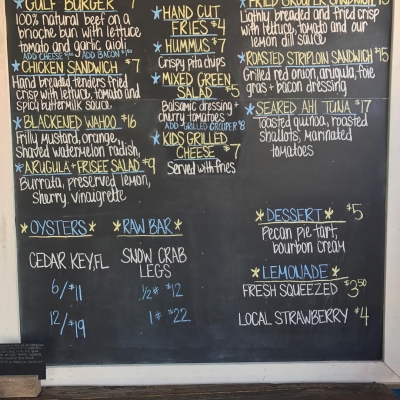 GULF BURGER 7
100% natural beef on a
brioche bun with lettuce
tomato and garlic aioli
ADD CHEESE ADD BACON
CHICKEN SANDWICH $7
Hand breaded tenders fried
crisp with lettuce, tomato and
spicy buttermilk sauce
BLACKENED WAHOO $16
Frilly mustard, orange,
Shaved watermelon radish,
ARUGULA + FRISEE SALAD $9
Burrata, preserved lemon,
Sherry vinaigrette
OYSTERS
CEDAR KEY, FL
6/$11
12/$19
HAND CUT
FRIES $4
HUMMUS $7
Crispy pita chips
MIXED GREEN
SALAD $5
Balsamic dressing +
cherry tomatoes
ADD GRILLED GROUPER $8
KIDS GRILLED
CHEESE $7
Served with fries
RAW BAR
SNOW CRAB
LEGS
1/2# $12
1# $22
FRIED GROUPER SANDWICH 15
Lightly breaded and fried crisp
with lettuce, tomato and our
lemon dill sauce
ROASTED STRIPLOIN SANDWICH $15
Grilled red onion, arugula, foie
gras + bacon dressing
SEARED AHI TUNA $17
Toasted quinoa, roasted
shallots, marinated
tomatoes
DESSERT $5
Pecan pie tart,
bourbon cream
LEMONADE
FRESH SQUEEZED $3.50
LOCAL STRAWBERRY $4